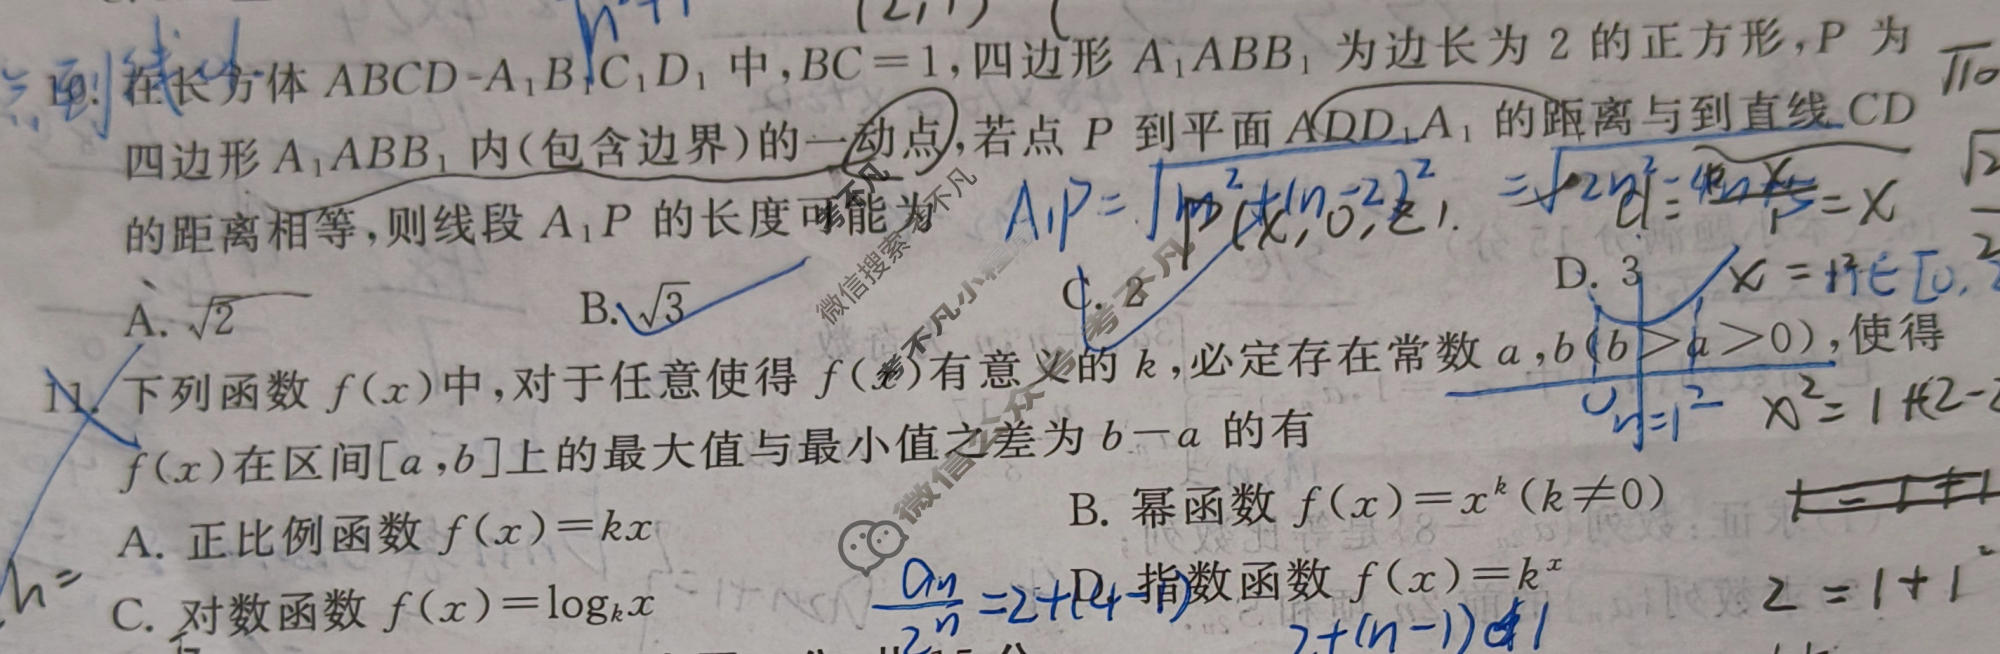 n²+1
(2,1) (
点到线
10. 在长方体 ABCD-A₁B₁C₁D₁ 中,BC=1,四边形 A₁ABB₁ 为边长为 2 的正方形,P 为
四边形 A₁ABB₁ 内(包含边界)的一动点,若点 P 到平面 ADD₁A₁ 的距离与到直线 CD
的距离相等,则线段 A₁P 的长度可能为
A₁P=√m²+(n-2)²
P(x,0,z).
=x
A. √2 B. √3 C. 2 D. 3
11. 下列函数 f(x)中,对于任意使得 f(x)有意义的 k,必定存在常数 a,b(b>a>0),使得
n=1
x²=1+(2-
f(x)在区间[a,b]上的最大值与最小值之差为 b-a 的有
A. 正比例函数 f(x)=kx B. 幂函数 f(x)=xᵏ(k≠0)
h=
2=1+1
C. 对数函数 f(x)=logₖx D. 指数函数 f(x)=kˣ
aₙ/2ⁿ=2+(4-1)
2+(n-1)
考不凡
微信搜索
考不凡小程序
微信公众号
考不凡